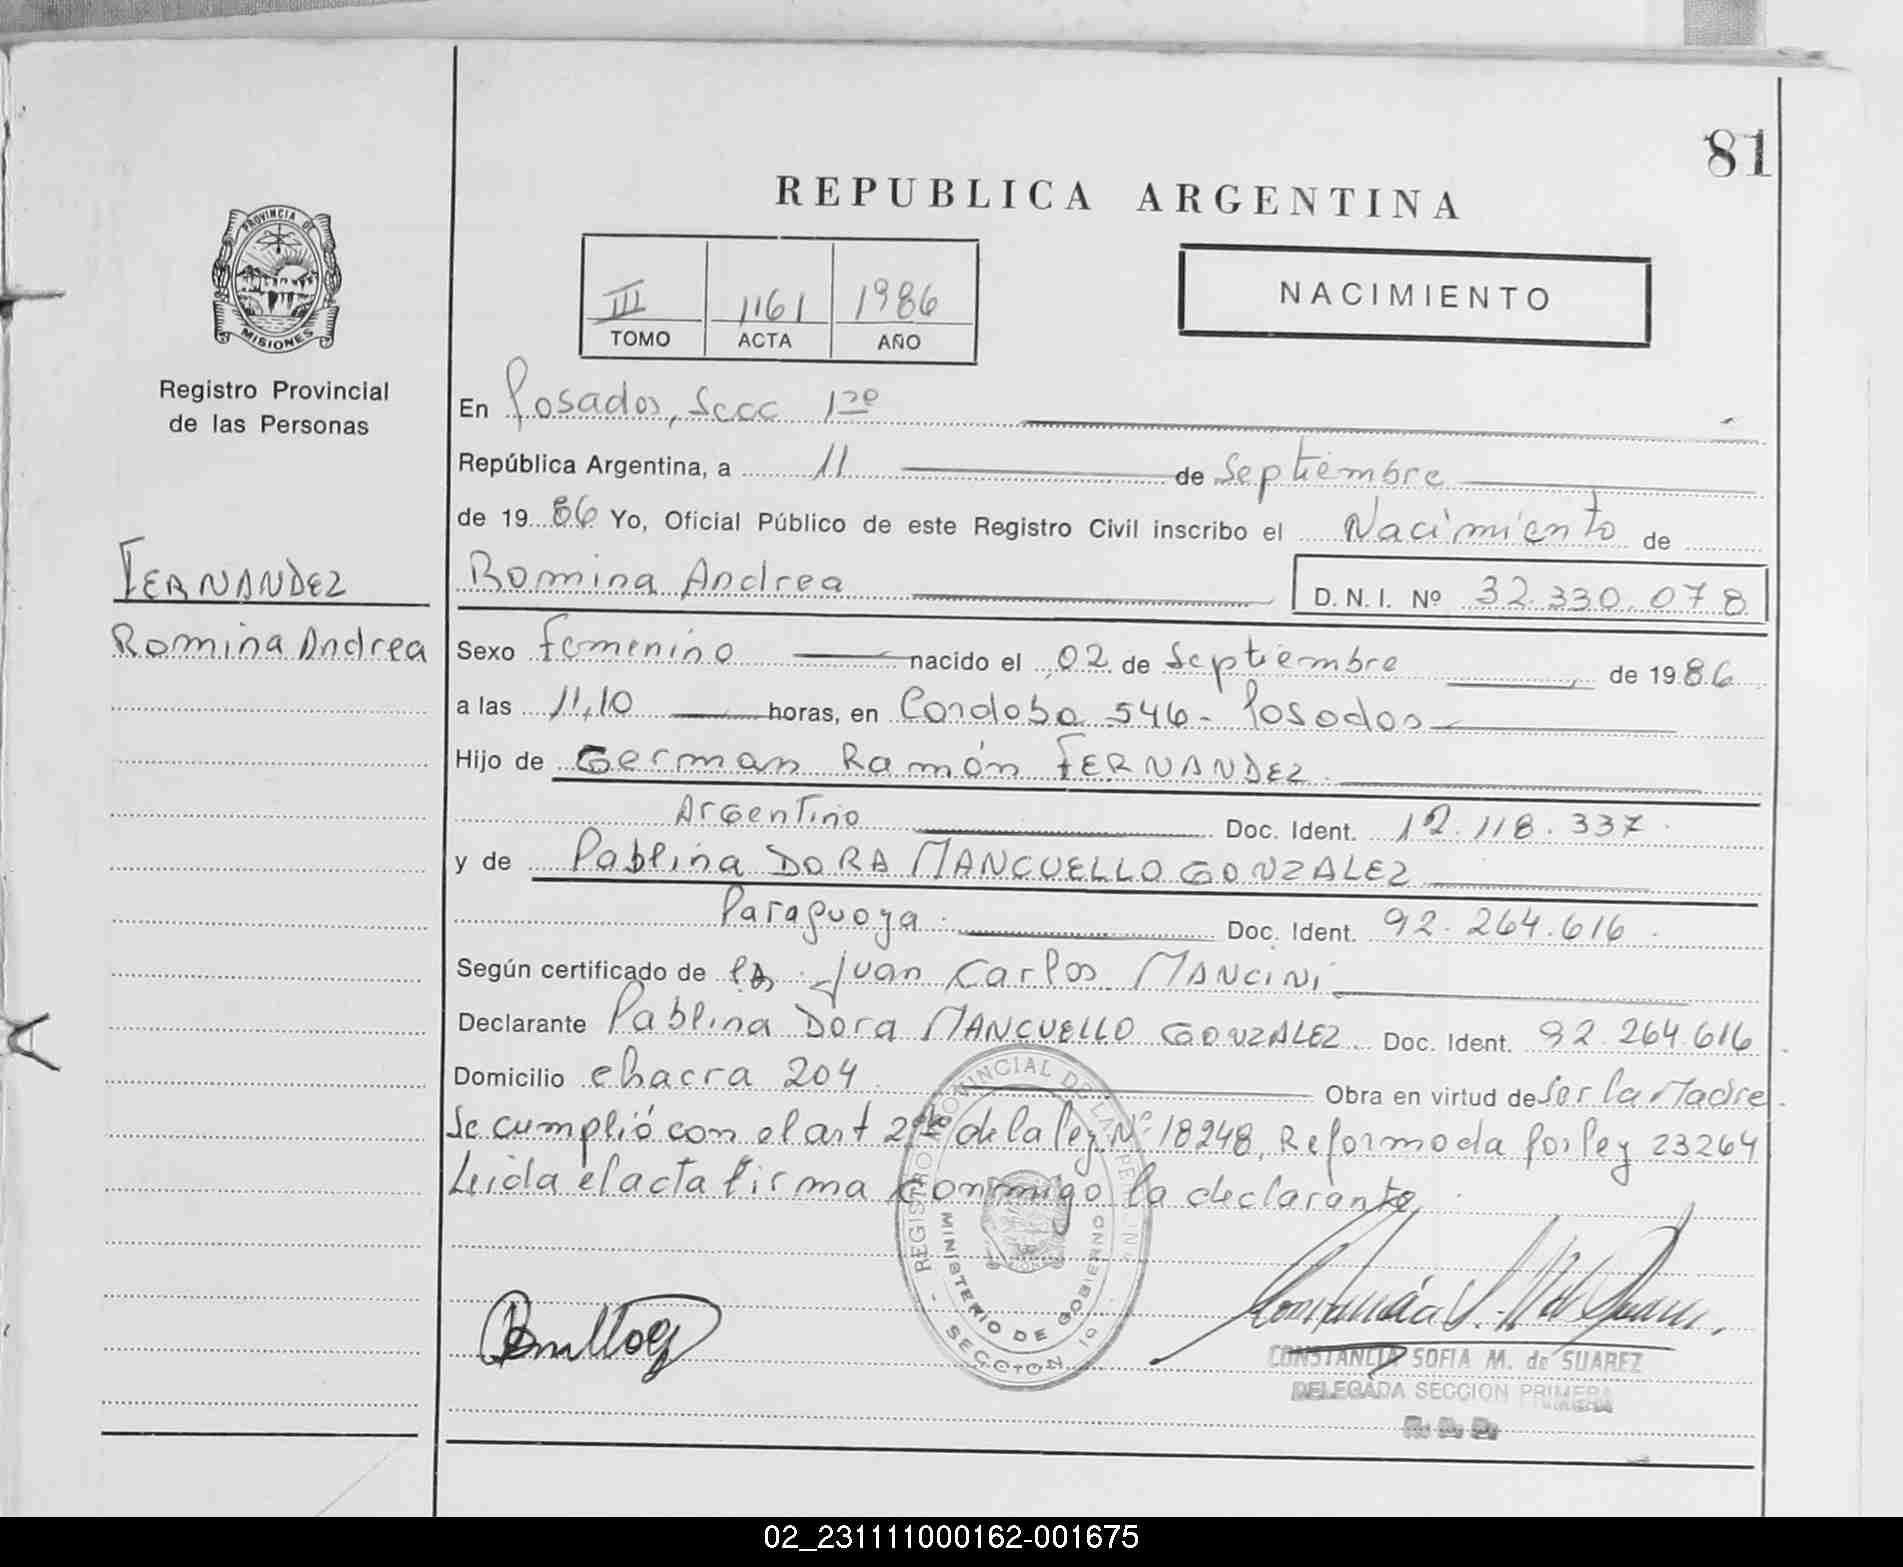 81
REPUBLICA ARGENTINA
PROVINCIA DE MISIONES
Registro Provincial
de las Personas
III 1161 1986
TOMO ACTA AÑO
NACIMIENTO
En Posadas, Secc 1ra
República Argentina, a 11 de Septiembre
de 1986 Yo, Oficial Público de este Registro Civil inscribo el Nacimiento de
FERNANDEZ
Romina Andrea
Romina Andrea D. N. I. Nº 32.330.078
Sexo femenino nacido el 02 de Septiembre de 1986
a las 11,10 horas, en Cordoba 546 - Posadas
Hijo de German Ramón FERNANDEZ
Argentino Doc. Ident. 12.118.337
y de Pablina DORA MANCUELLO GONZALEZ
Paraguaya Doc. Ident. 92.264.616
Según certificado de Juan Carlos MANCINI
Declarante Pablina Dora MANCUELLO GONZALEZ Doc. Ident. 92.264.616
Domicilio chacra 204 Obra en virtud de Ser la Madre
Se cumplió con el art 2do de la ley Nº 18248, Reformada por ley 23264
Leida el acta firma conmigo la declarante
REGISTRO PROVINCIAL DE LAS PERSONAS
MINISTERIO DE GOBIERNO
CONSTANCIA SOFIA M. de SUAREZ
DELEGADA SECCION PRIMERA
R. P. P.
02_231111000162-001675